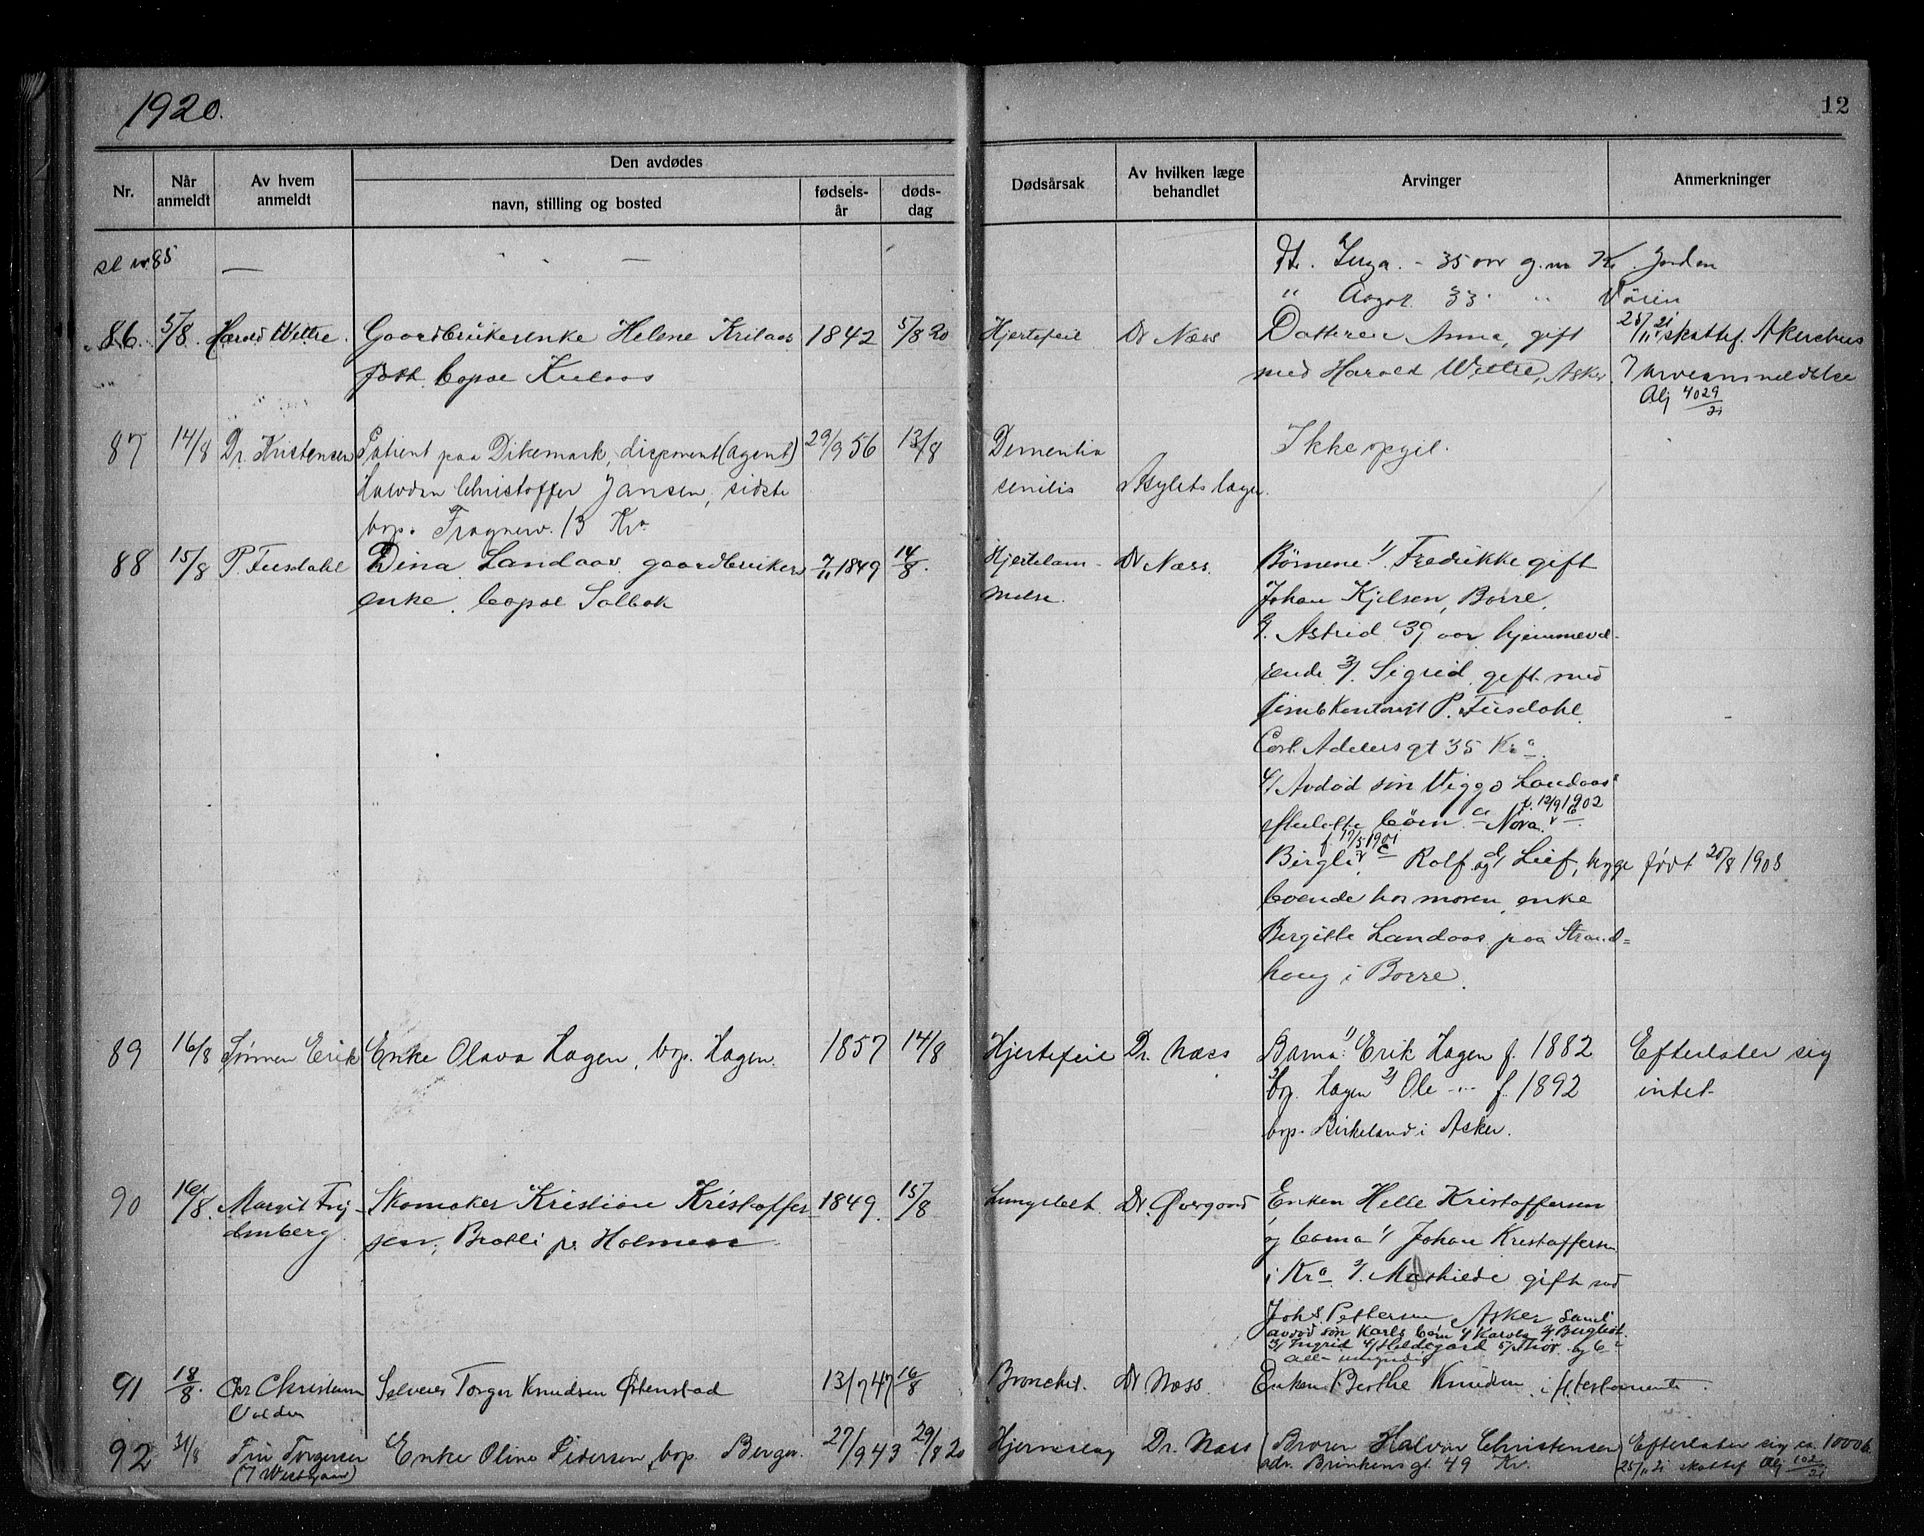 1920.
12
Nr.
Når anmeldt
Av hvem anmeldt
Den avdødes
navn, stilling og bosted
fødsels-år
døds-dag
Dødsårsak
Av hvilken læge behandlet
Arvinger
Anmerkninger
85
—
—
35 aar g. m
33
86. 5/8. Harald Wettre. Gaardbrukerenke Helene 1842 5/8 20 Hjertefeil Dr Næss Datteren Anna, gift 25/11 21 skattef. Akershus
født bopæl med Harald Wettre, Asker 7 arveanmeldelse
Alj 4029/21
87 14/8 Dr. Kristensen Patient paa Dikemark, disponent (agent) 29/9 56 13/8 Dementia Ikke opgit.
Halvdan Christoffer Jansen, sidste senilis Asylets læger.
bop. Frognerv. 13 Kra
88 15/8 P. Fusdahl Dina Landaas gaardbruker 7/11 1849 14/8. Hjertelam- Dr Næss. Børnene: 1/ Fredrikke gift
enke. bopæl Solbak melse. Johan Kjelsen, Borre.
2. Astrid 39 aar hjemmevæ-
rende 3/. Sigrid, gift med
P. Fusdahl.
Carl Adelers gt 35 Kra.
4/ Avdød søn Viggo Landaas
f. 12/9 1902
efterlatte børn a Nora.
f. 17/5 1901
Rolf og d/ Leif, født 20/8 1908
boende hos moren, enke
Bergitte Landaas paa Strand=
haug i Borre.
89 16/8 Sønnen Erik Enke Olava Hagen, bop. Hagen. 1857 14/8 Hjertefeil Dr. Næss Barna: 1/ Erik Hagen f. 1882 Efterlater sig
bop. Hagen 2/ Ole -"- f. 1892 intet.
bop. Birkeland i Asker.
90 16/8. Margit Skomaker Kristian Kristoffer 1849. 15/8 Lungebet. Dr. Øvergaard Enken Helle Kristoffersen
sen, Bratli pr. Holmen og barna 1/ Johan Kristoffersen
i Kra 2/. Mathilde gift med
Johs. Pettersen Asker samt
avdød søn Karls børn 1/ Karola 2/ Bergliot
3/ Ingrid 4/ Hildegard 5/ Thor og 6
alle umyndige
91 18/8. Christian Selveier Torger Knudsen Østenstad 13/7 47 16/8 Bronchit. Dr Næss. Enken Berthe Knudsen,
Valden
92 31/8 Fru Torgersen Enke Oline Pedersen, bop. Berger. 27/9 43 29/8 20 Hjerneslag Dr. Næss Broren Halvor Christensen Efterlater sig ca. 1000 k.
adr. Brinkens gt. 49 Kr. 25/11 21 skattef Alj 102/21